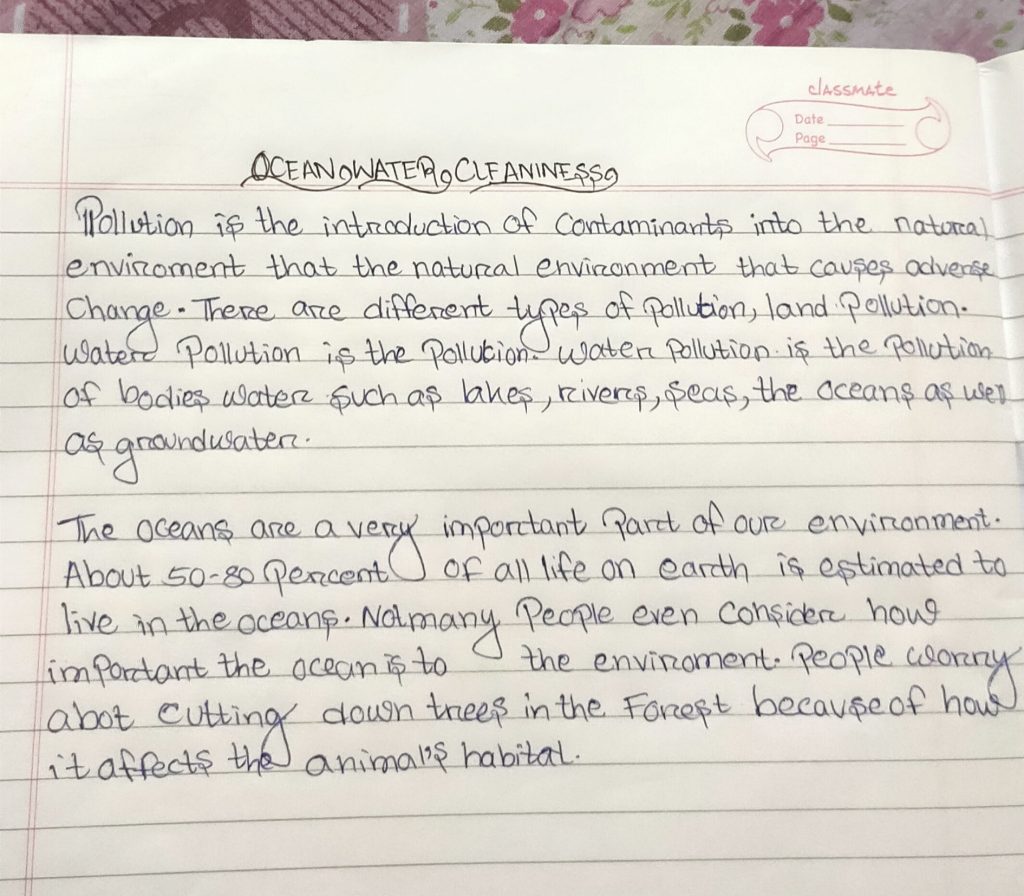 classmate
Date
Page
OCEAN WATER CLEANINESS
Pollution is the introduction of contaminants into the natural
enviroment that the natural environment that causes adverse
Change. There are different types of pollution, land pollution.
Water Pollution is the Pollution. Water Pollution is the Pollution
of bodies water such as lakes, rivers, seas, the oceans as well
as groundwater.
The oceans are a very important part of our environment.
About 50-80 Percent of all life on earth is estimated to
live in the oceans. Not many People even consider how
important the ocean is to the enviroment. People worry
abot cutting down trees in the Forest because of how
it affects the animal's habital.